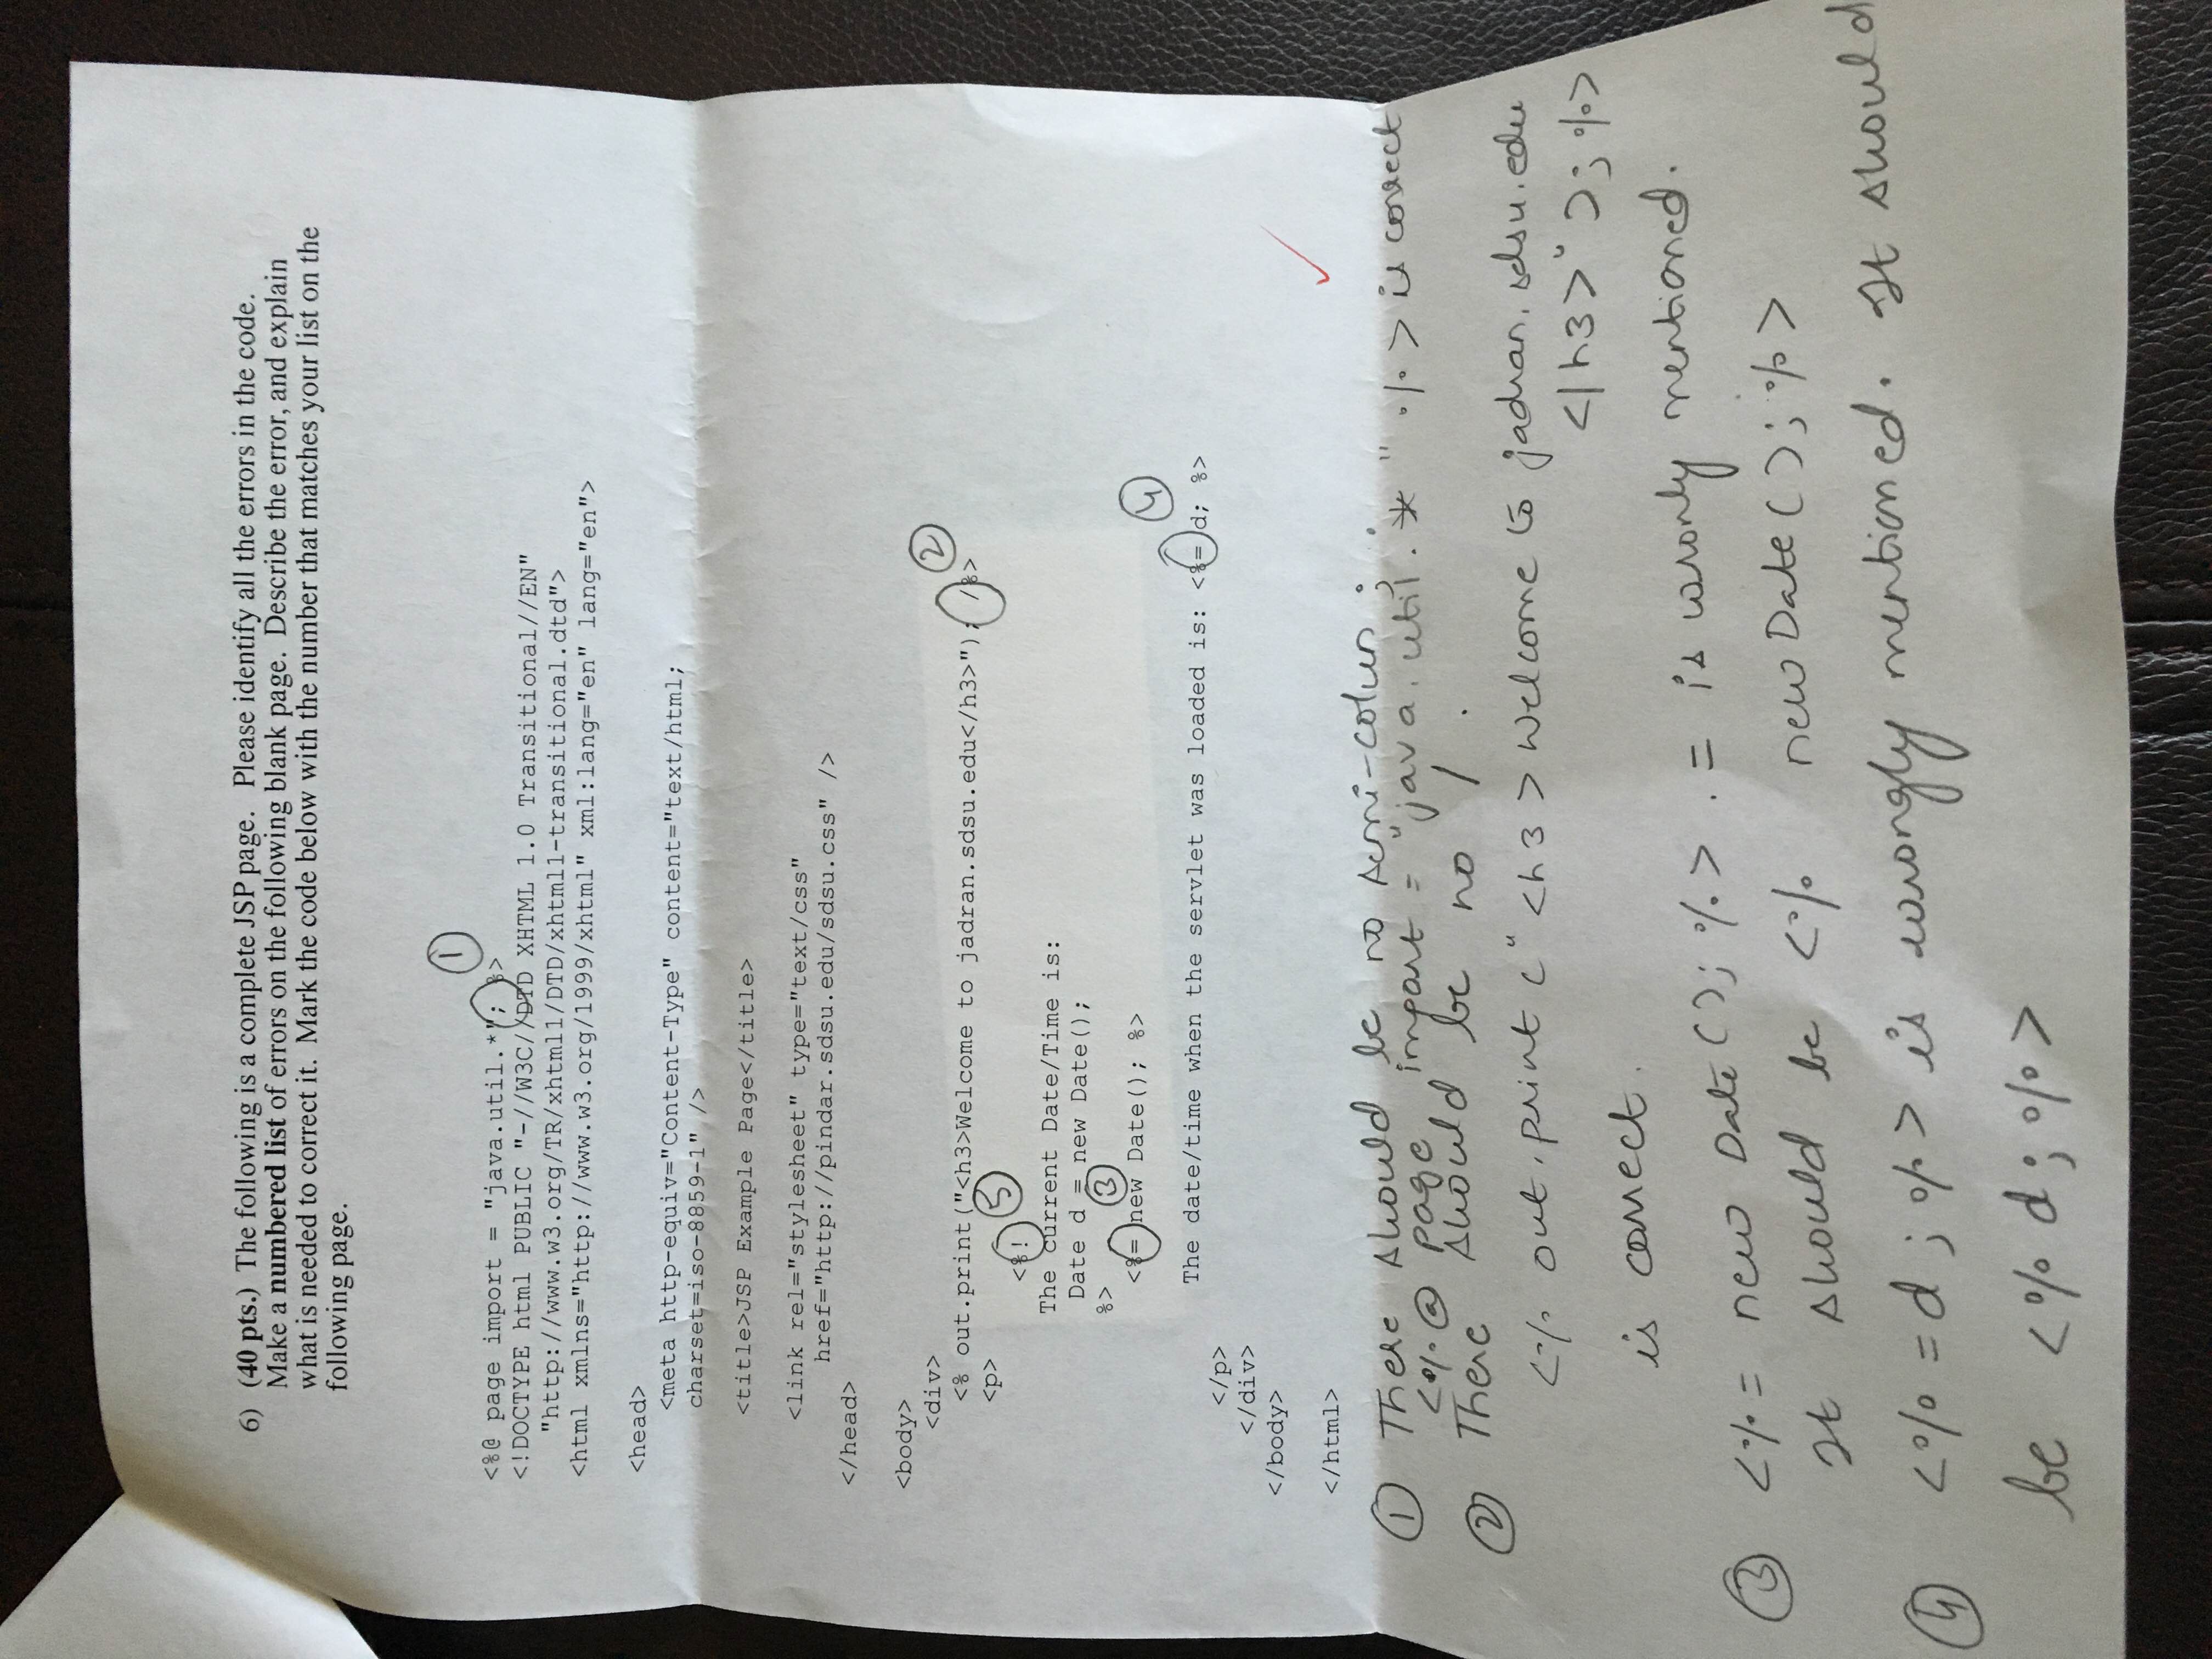 6) (40 pts.) The following is a complete JSP page. Please identify all the errors in the code.
Make a numbered list of errors on the following blank page. Describe the error, and explain
what is needed to correct it. Mark the code below with the number that matches your list on the
following page.
1
<%@ page import = "java.util.*"; %>
<!DOCTYPE html PUBLIC "-//W3C//DTD XHTML 1.0 Transitional//EN"
"http://www.w3.org/TR/xhtml1/DTD/xhtml1-transitional.dtd">
<html xmlns="http://www.w3.org/1999/xhtml" xml:lang="en" lang="en">
<head>
<meta http-equiv="Content-Type" content="text/html;
charset=iso-8859-1" />
<title>JSP Example Page</title>
<link rel="stylesheet" type="text/css"
href="http://pindar.sdsu.edu/sdsu.css" />
</head>
<body>
<div>
2
<% out.print("<h3>Welcome to jadran.sdsu.edu</h3>"); /%>
<p>
5
<%!
The current Date/Time is:
Date d = new Date();
%>
3
<%= new Date(); %>
4
The date/time when the servlet was loaded is: <%= d; %>
</p>
</div>
</body>
</html>
1 There should be no semi-colun ; .
<%@ page import = "java.util.*" %> is correct
2 There should be no / .
<% out.print ("<h3>Welcome to jadran.sdsu.edu
</h3>"); %>
is correct.
3 <%= new Date(); %> . = is wronly mentioned.
It should be <% new Date(); %>
4 <% = d ; %> is wrongly mentioned. It should
be <% d; %>